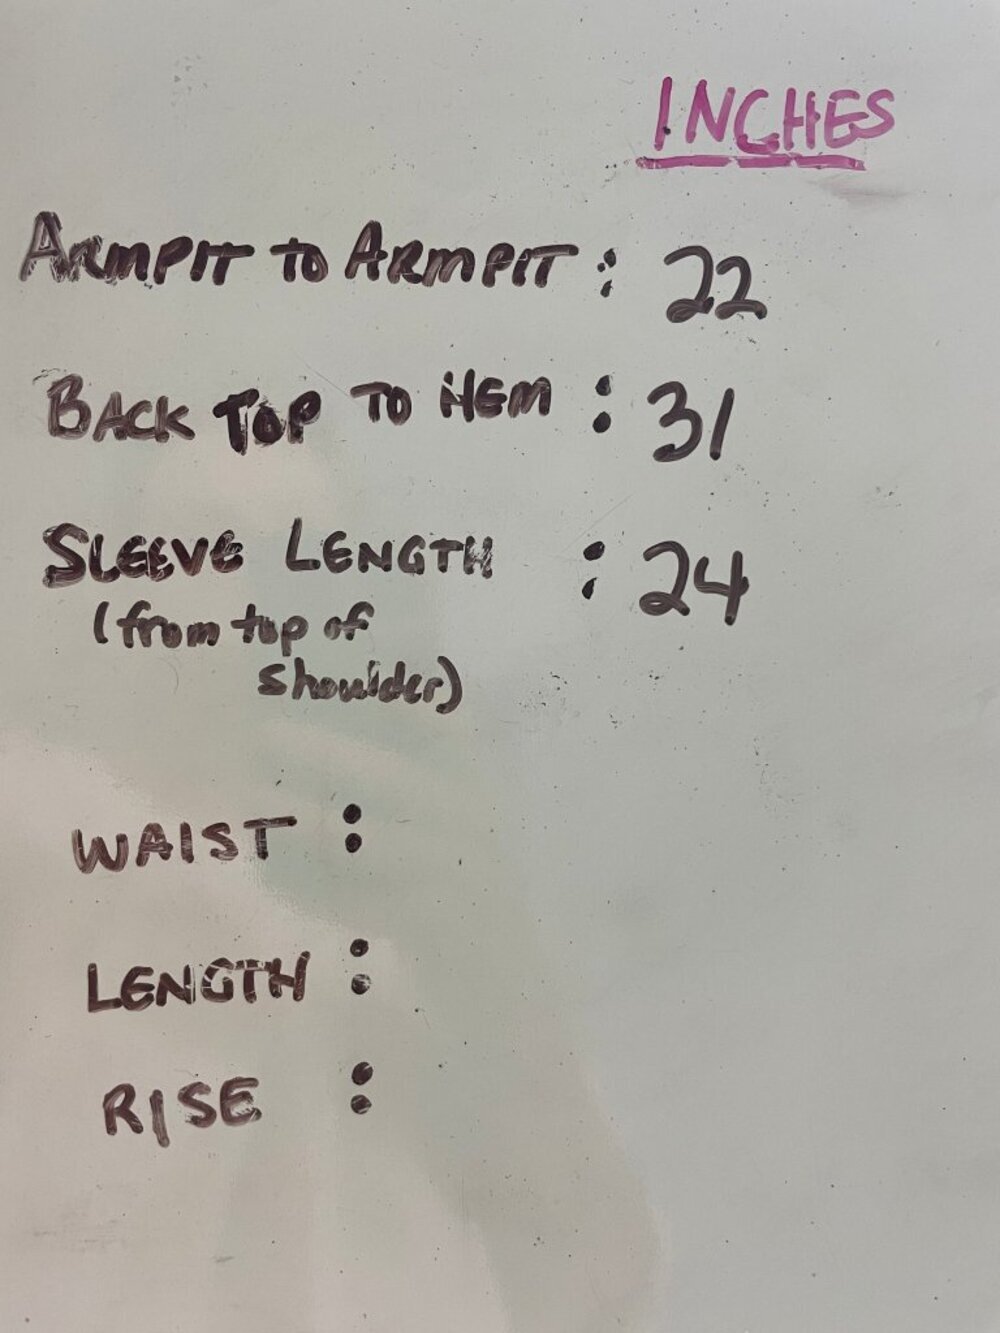 INCHES
ARMPIT TO ARMPIT : 22
BACK TOP TO HEM : 31
SLEEVE LENGTH : 24
(from top of
shoulder)
WAIST :
LENGTH :
RISE :